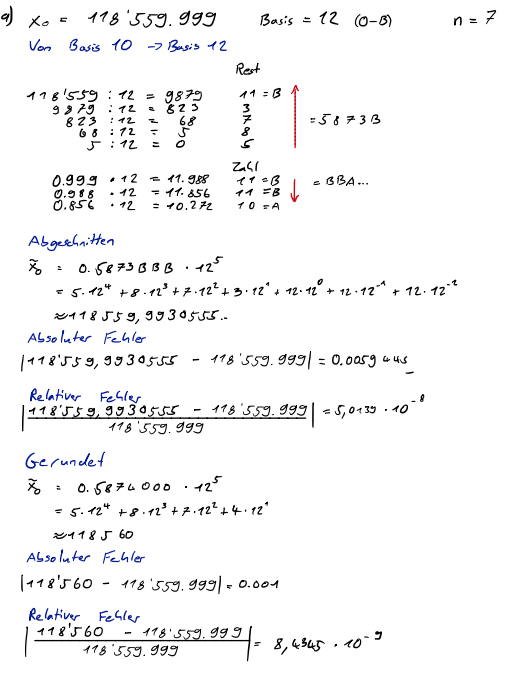 a) x₀ = 118'559.999 Basis = 12 (0-B) n = 7
Von Basis 10 → Basis 12
Rest
118'559 : 12 = 9879 11 = B
9879 : 12 = 823 3
823 : 12 = 68 7 = 5873B
68 : 12 = 5 8
5 : 12 = 0 5
Zahl
0.999 · 12 = 11.988 11 = B
0.988 · 12 = 11.856 11 = B = BBA...
0.856 · 12 = 10.272 10 = A
Abgeschnitten
x̃₀ = 0.5873BBB · 12⁵
= 5·12⁴ + 8·12³ + 7·12² + 3·12¹ + 12·12⁰ + 12·12⁻¹ + 12·12⁻²
≈ 118559,9930555..
Absoluter Fehler
|118'559,9930555 - 118'559.999| = 0.0059445
Relativer Fehler
|118'559,9930555 - 118'559.999| = 5,0139 · 10⁻⁸
118'559.999
Gerundet
x̃₀ = 0.5874000 · 12⁵
= 5·12⁴ + 8·12³ + 7·12² + 4·12¹
≈ 118560
Absoluter Fehler
|118'560 - 118'559.999| = 0.001
Relativer Fehler
|118'560 - 118'559.999| = 8,4345 · 10⁻⁹
118'559.999